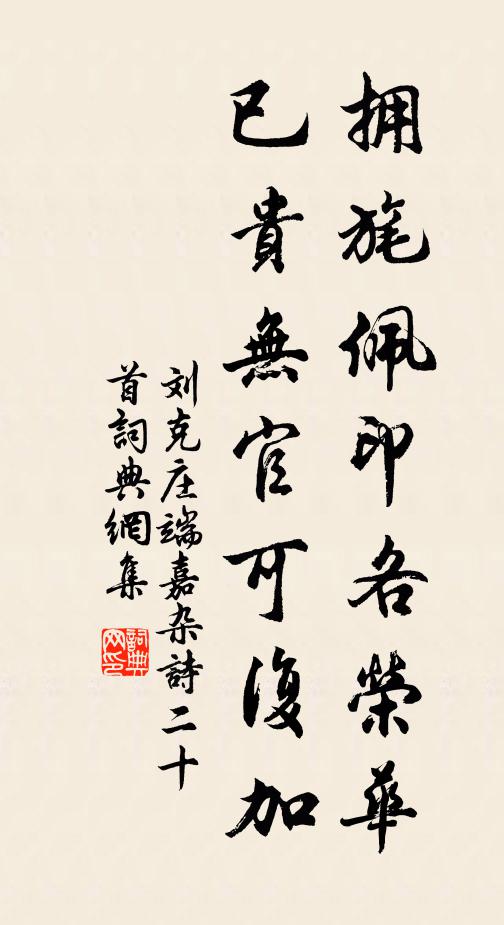 拥旄佩印各榮華
已貴無官可復加
刘克庄端嘉杂詩二十
首詞典網集
詞典网印